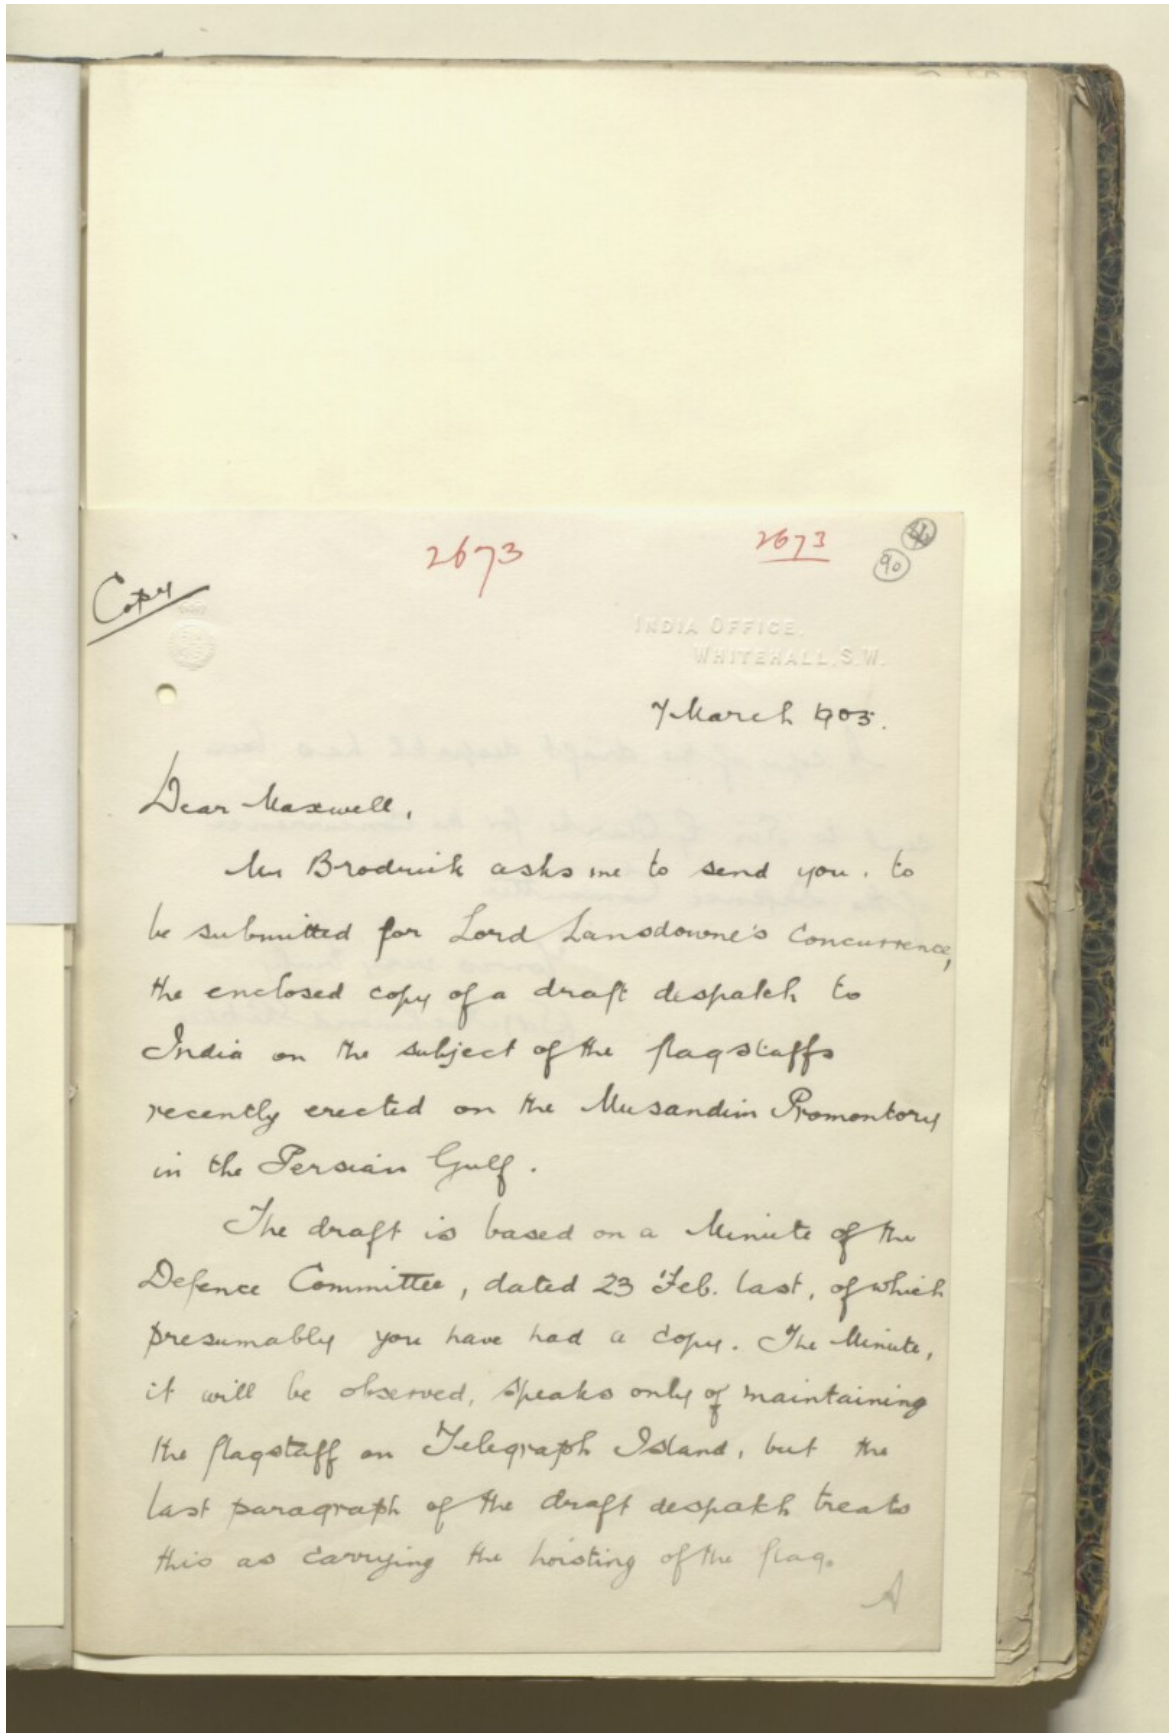 2673
2673
90
Copy
INDIA OFFICE,
WHITEHALL, S.W.
7 March 1905.
Dear Maxwell,
Mr Brodrick asks me to send you, to
be submitted for Lord Lansdowne's concurrence,
the enclosed copy of a draft despatch to
India on the subject of the flagstaffs
recently erected on the Musandim Promontory
in the Persian Gulf.
The draft is based on a Minute of the
Defence Committee, dated 23 Feb. last, of which
presumably you have had a copy. The Minute,
it will be observed, speaks only of maintaining
the flagstaff on Telegraph Island, but the
last paragraph of the draft despatch treats
this as carrying the hoisting of the flag.
A